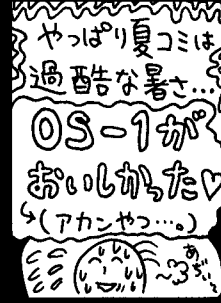 やっぱり夏コミは
過酷な暑さ…
OS-1が
おいしかった♡
↳(アカンやつ…。)
あぢぃ〜